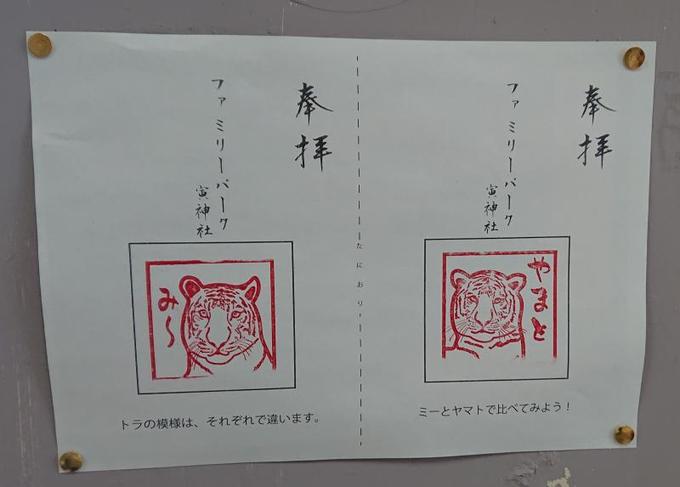 奉拝
ファミリーパーク
寅神社
やまと
ミーとヤマトで比べてみよう！
たにおり
奉拝
ファミリーパーク
寅神社
み～
トラの模様は、それぞれで違います。